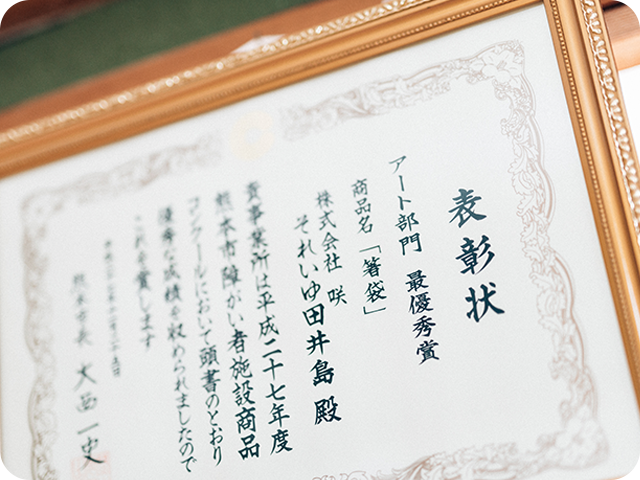 表彰状
アート部門 最優秀賞
商品名「箸袋」
株式会社 咲
それいゆ田井島 殿
貴事業所は平成二十七年度
熊本市障がい者施設商品
コンクールにおいて頭書のとおり
優秀な成績を収められましたので
これを賞します
熊本市長 大西一史